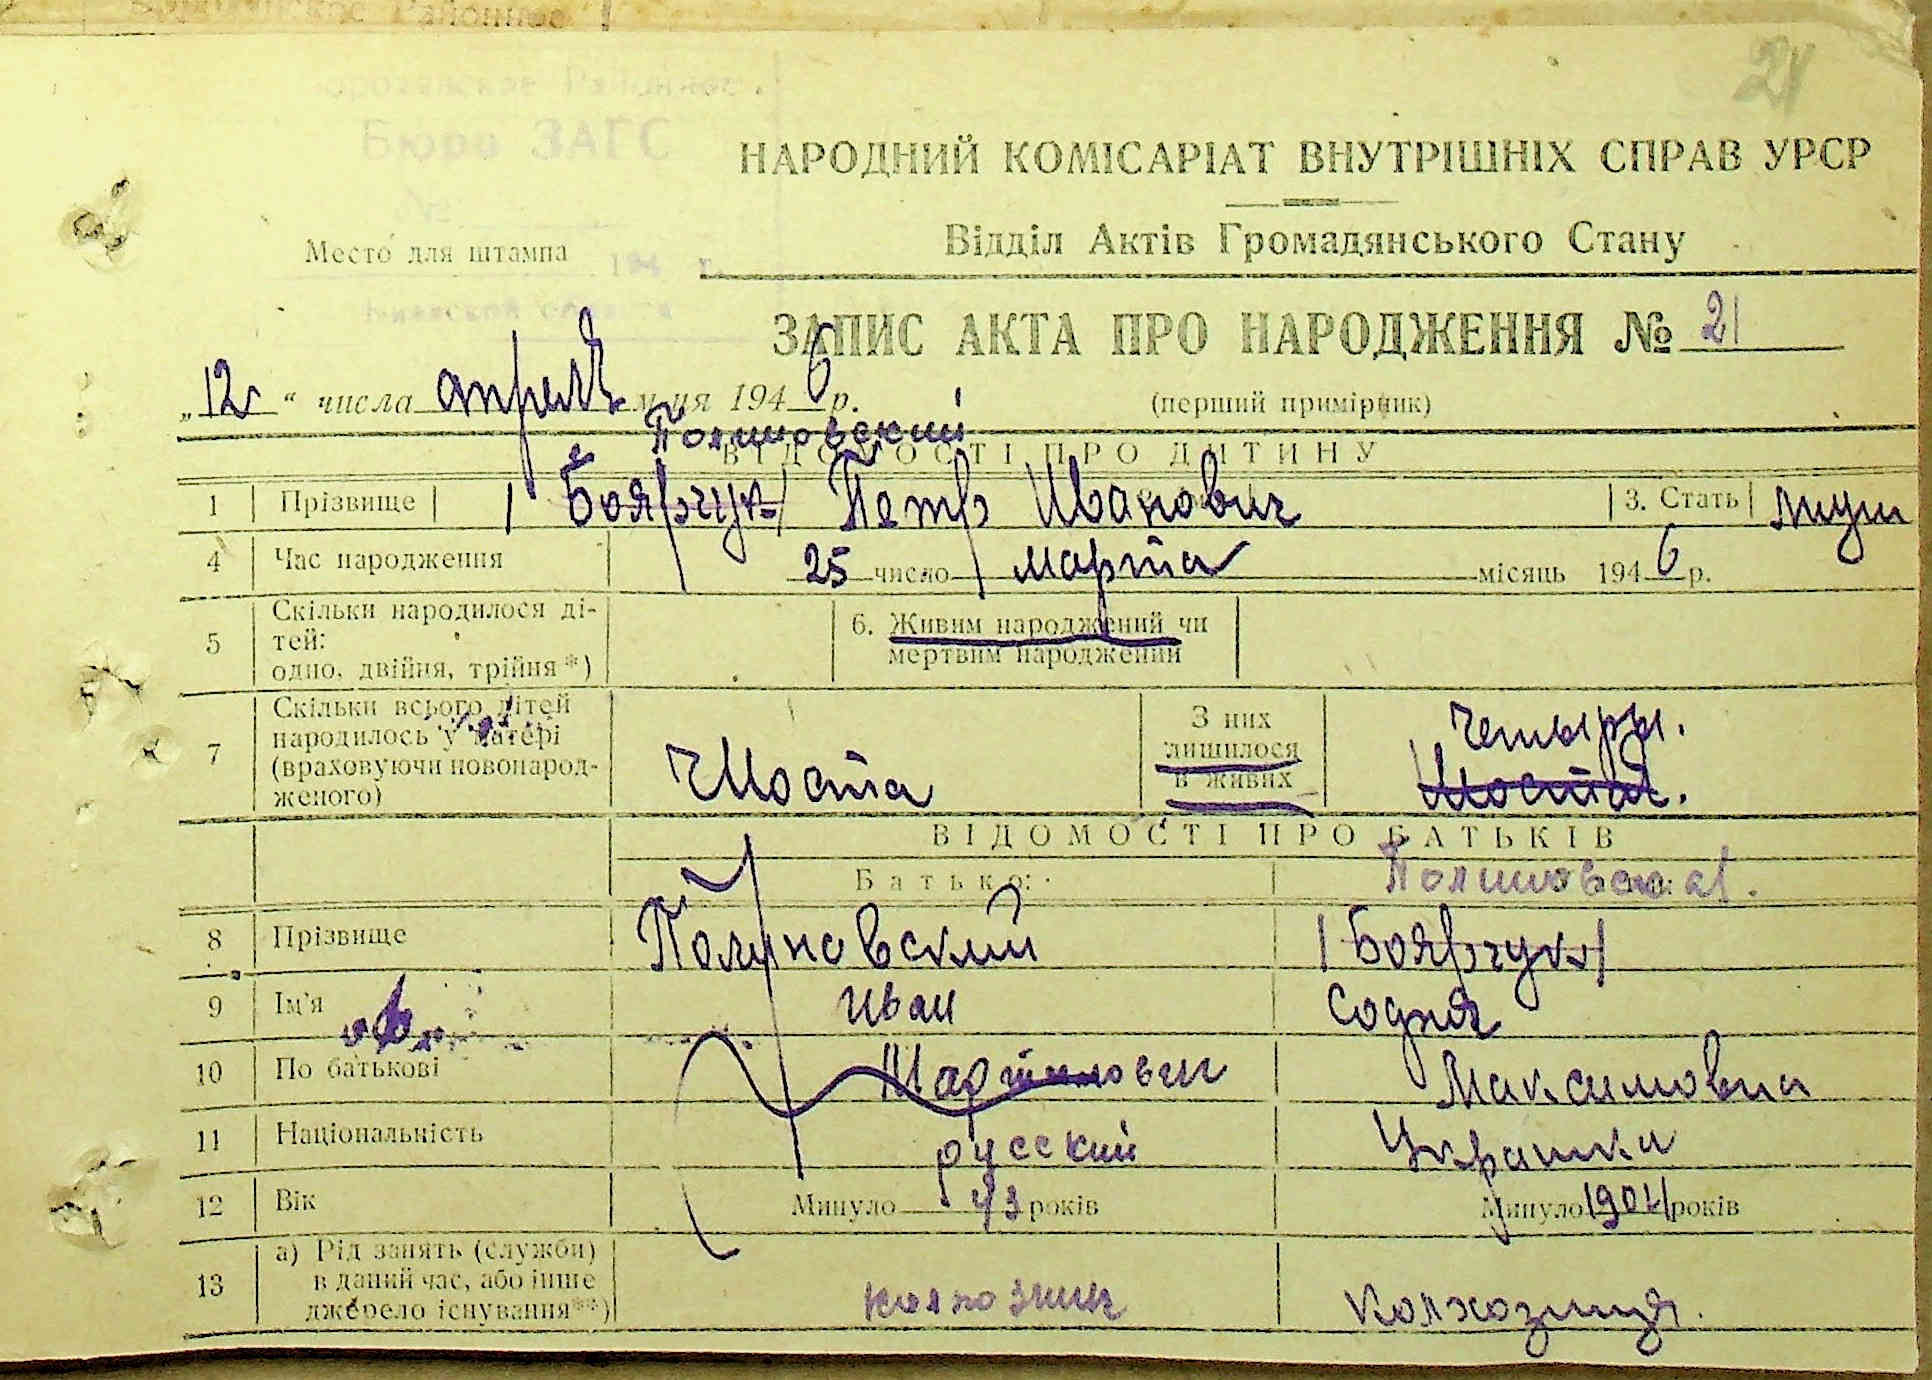 21
Бюро ЗАГС
НАРОДНИЙ КОМІСАРІАТ ВНУТРІШНІХ СПРАВ УРСР
Место для штампа 194 г.
Відділ Актів Громадянського Стану
ЗАПИС АКТА ПРО НАРОДЖЕННЯ № 21
„12“ числа апреля м-ця 1946 р. (перший примірник)
ВІДОМОСТІ ПРО ДИТИНУ
1 Прізвище Боярчук Петр Иванович 3. Стать муж
4 Час народження 25 число марта місяць 1946 р.
5 Скільки народилося ді-
тей:
одно, двійня, трійня*)
6. Живим народжений чи
мертвим народжений
7 Скільки всього дітей
народилось у матері
(враховуючи новонарод-
женого)
Шоста
З них
лишилося
в живих
Четыры.
Шоста.
ВІДОМОСТІ ПРО БАТЬКІВ
Батько:
8 Прізвище Боярчук
9 Ім'я Иван
10 По батькові Мартинович Максимовна
11 Національність русский Украинка
12 Вік Минуло 43 років Минуло 1904 років
13 а) Рід занять (служби)
в даний час, або інше
джерело існування**)
колхозник Колхозниця.